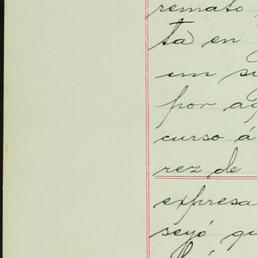 remato
ta en
un su
por
curso á
rez de
expresa
seyó qu